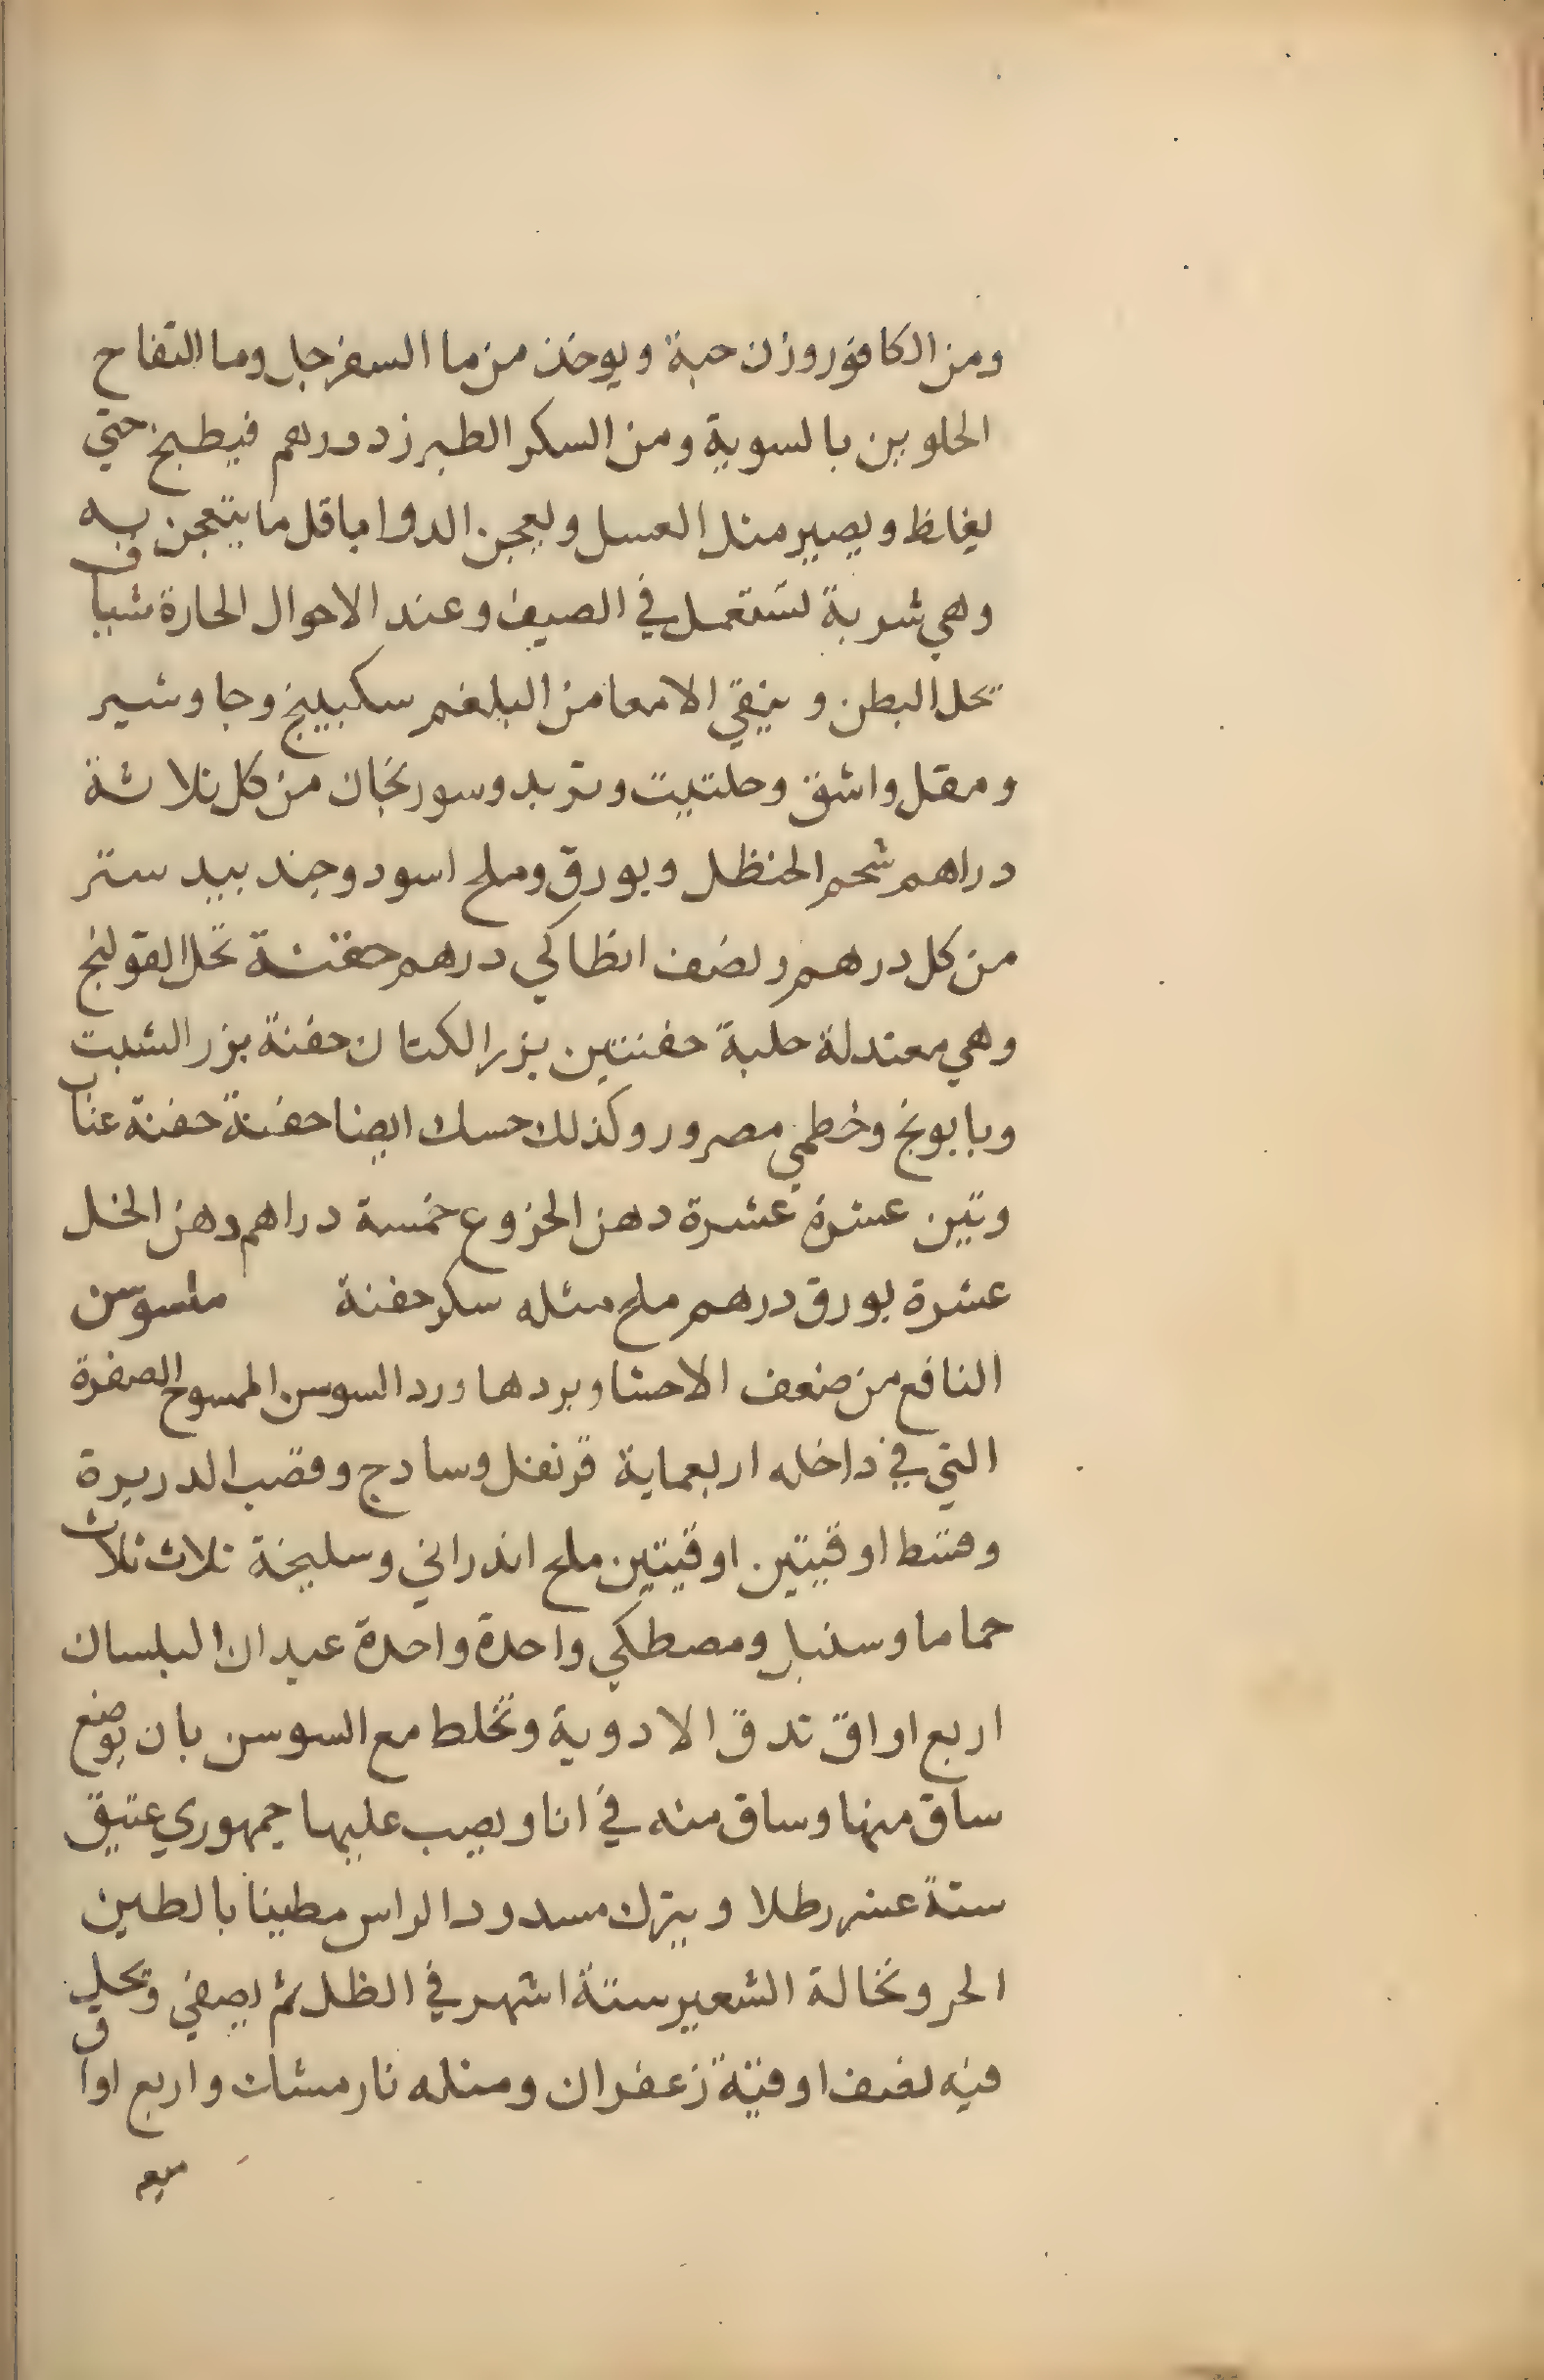 ومن الكافور وزن حبة ويوخذ من ما السفرجل وما التفاح
الحلوين بالسوية ومن السكر الطبرزد درهم فيطبخ حتي
يغلظ ويصير مثل العسل ويعجن الدوا باقل ما يتعجن به
وهي شربة تستعمل في الصيف وعند الاحوال الحارة شياف
تحل البطن وينقي الامعا من البلغم سكبينج وجاوشير
ومقل واشق وحلتيت وتربد وسورنجان من كل ثلاثة
دراهم شحم الحنظل وبورق وملح اسود وجندبيدستر
من كل درهم ونصف انطاكي درهم حقنة تحل القولنج
وهي معتدلة حلبة حفنتين بزر الكتان حفنة بزر الشبت
وبابونج وخطمي مصرور وكذلك حسك ايضا حفنة حفنة عناب
وتين عشرة عشرة دهن الخروع خمسة دراهم دهن الخل
عشرة بورق درهم ملح مثله سكر حفنة ملسوسن
النافع من ضعف الاحشا وبردها ورد السوسن الممسوح الصفرة
التي في داخله اربعماية قرنفل وسادج وقصب الدريرة
وقسط اوقيتين اوقيتين ملح اندراني وسليخة ثلاث ثلاث
حماما وسنبل ومصطكي واحدة واحدة عيدان البلسان
اربع اواق تدق الادوية وتخلط مع السوسن بان يوضع
ساق منها وساق منه في انا ويصب عليها جمهوري عتيق
ستة عشر رطلا ويترك مسدود الراس مطينا بالطين
الحر ونخالة الشعير ستة اشهر في الظل ثم يصفي وتحل
فيه نصف اوقية زعفران ومثله نارمشك واربع اواق
ميعه